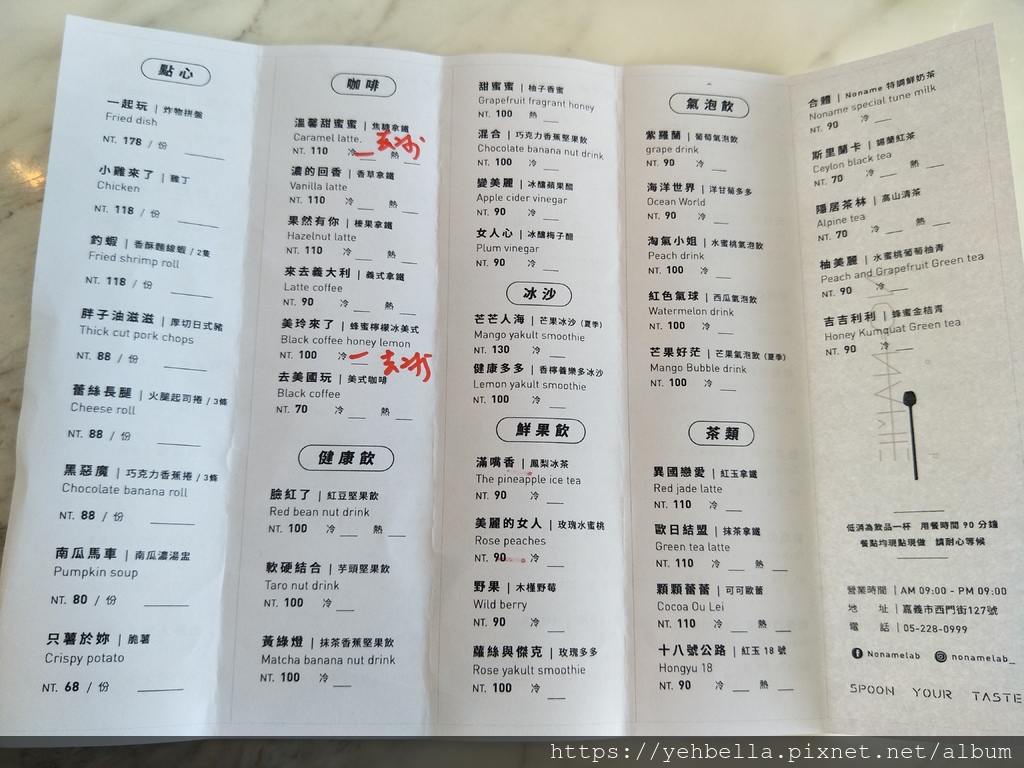 點心
一起玩 | 炸物拼盤
Fried dish
NT. 178 / 份
小雞來了 | 雞丁
Chicken
NT. 118 / 份
釣蝦 | 香酥麵線蝦 / 2隻
Fried shrimp roll
NT. 118 / 份
胖子油滋滋 | 厚切日式豬
Thick cut pork chops
NT. 88 / 份
蕾絲長腿 | 火腿起司捲 / 3條
Cheese roll
NT. 88 / 份
黑惡魔 | 巧克力香蕉捲 / 3條
Chocolate banana roll
NT. 88 / 份
南瓜馬車 | 南瓜濃湯盅
Pumpkin soup
NT. 80 / 份
只薯於妳 | 脆薯
Crispy potato
NT. 68 / 份
咖啡
溫馨甜蜜蜜 | 焦糖拿鐵
Caramel latte.
NT. 110 冷 去冰 熱
濃的回香 | 香草拿鐵
Vanilla latte
NT. 110 冷 熱
果然有你 | 榛果拿鐵
Hazelnut latte
NT. 110 冷 熱
來去義大利 | 義式拿鐵
Latte coffee
NT. 90 冷 熱
美玲來了 | 蜂蜜檸檬冰美式
Black coffee honey lemon
NT. 100 冷 去冰
去美國玩 | 美式咖啡
Black coffee
NT. 70 冷 熱
健康飲
臉紅了 | 紅豆堅果飲
Red bean nut drink
NT. 100 冷 熱
軟硬結合 | 芋頭堅果飲
Taro nut drink
NT. 100 冷
黃綠燈 | 抹茶香蕉堅果飲
Matcha banana nut drink
NT. 100 冷
甜蜜蜜 | 柚子香蜜
Grapefruit fragrant honey
NT. 100 熱
混合 | 巧克力香蕉堅果飲
Chocolate banana nut drink
NT. 100 冷
變美麗 | 冰釀蘋果醋
Apple cider vinegar
NT. 90 冷
女人心 | 冰釀梅子醋
Plum vinegar
NT. 90 冷
冰沙
芒芒人海 | 芒果冰沙 (夏季)
Mango yakult smoothie
NT. 130 冷
健康多多 | 香檸養樂多冰沙
Lemon yakult smoothie
NT. 100 冷
鮮果飲
滿嘴香 | 鳳梨冰茶
The pineapple ice tea
NT. 90 冷
美麗的女人 | 玫瑰水蜜桃
Rose peaches
NT. 90 冷
野果 | 木槿野莓
Wild berry
NT. 90 冷
蘿絲與傑克 | 玫瑰多多
Rose yakult smoothie
NT. 100 冷
氣泡飲
紫羅蘭 | 葡萄氣泡飲
grape drink
NT. 90 冷
海洋世界 | 洋甘菊多多
Ocean World
NT. 90 冷
淘氣小姐 | 水蜜桃氣泡飲
Peach drink
NT. 100 冷
紅色氣球 | 西瓜氣泡飲
Watermelon drink
NT. 100 冷
芒果好茫 | 芒果氣泡飲 (夏季)
Mango Bubble drink
NT. 100 冷
茶類
異國戀愛 | 紅玉拿鐵
Red jade latte
NT. 110 冷
歐日結盟 | 抹茶拿鐵
Green tea latte
NT. 110 冷 熱
顆顆蕾蕾 | 可可歐蕾
Cocoa Ou Lei
NT. 110 冷 熱
十八號公路 | 紅玉 18 號
Hongyu 18
NT. 90 冷 熱
合體 | Noname 特調鮮奶茶
Noname special tune milk
NT. 90 冷
斯里蘭卡 | 錫蘭紅茶
Ceylon black tea
NT. 70 冷 熱
隱居茶林 | 高山清茶
Alpine tea
NT. 70 冷 熱
柚美麗 | 水蜜桃葡萄柚青
Peach and Grapefruit Green tea
NT. 90 冷
吉吉利利 | 蜂蜜金桔青
Honey Kumquat Green tea
NT. 90 冷
低消為飲品一杯 用餐時間 90 分鐘
餐點均現點現做 請耐心等候
營業時間 | AM 09:00 - PM 09:00
地 址 | 嘉義市西門街127號
電 話 | 05-228-0999
Nonamelab nonamelab_
SPOON YOUR TASTE
https://yehbella.pixnet.net/album